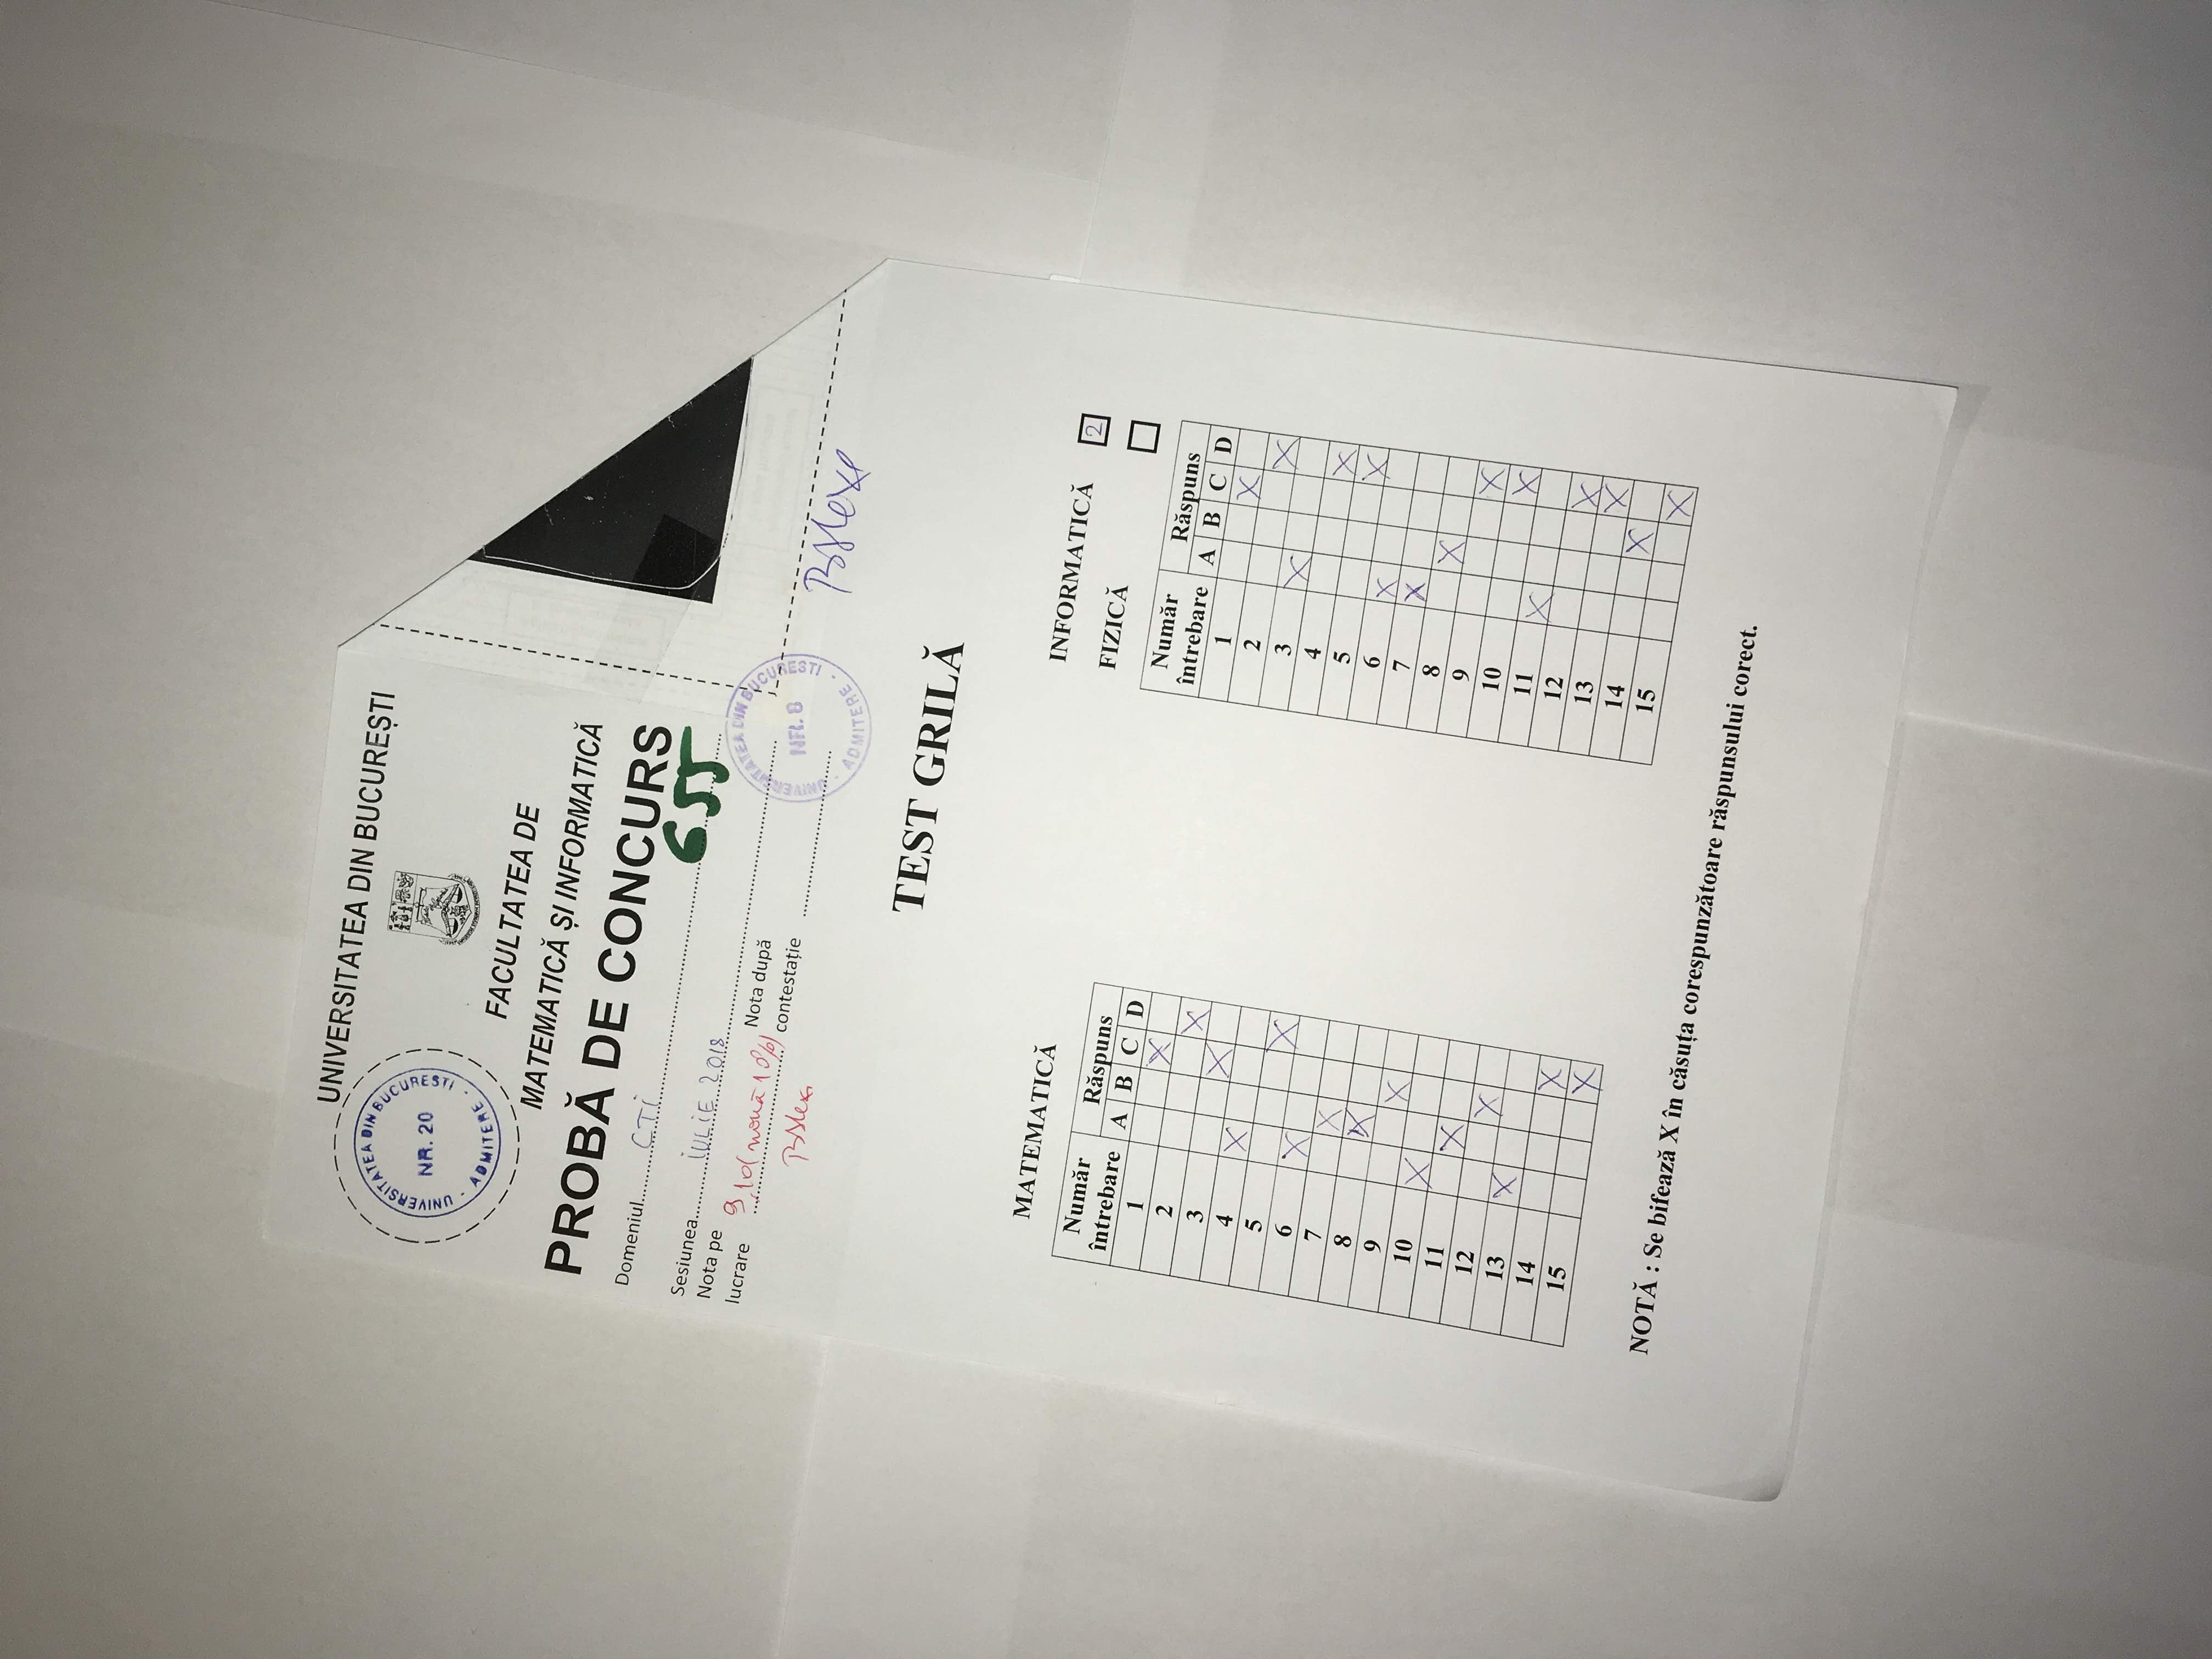 UNIVERSITATEA DIN BUCUREȘTI
UNIVERSITATEA DIN BUCURESTI
NR. 20
ADMITERE
FACULTATEA DE
MATEMATICĂ ȘI INFORMATICĂ
PROBĂ DE CONCURS
Domeniul CTI
655
Sesiunea IULIE 2018
Nota pe lucrare 9,10 (nouă 10%)
Nota după contestație
UNIVERSITATEA DIN BUCURESTI
NR. 8
ADMITERE
TEST GRILĂ
MATEMATICĂ
Număr întrebare Răspuns
A B C D
1 X
2 X
3 X
4 X
5 X
6 X
7 X
8 X
9 X
10 X
11 X
12 X
13 X
14 X
15 X
INFORMATICĂ 2
FIZICĂ
Număr întrebare Răspuns
A B C D
1 X
2 X
3 X
4 X
5 X
6 X
7 X
8 X
9 X
10 X
11 X
12 X
13 X
14 X
15 X
NOTĂ : Se bifează X în căsuța corespunzătoare răspunsului corect.